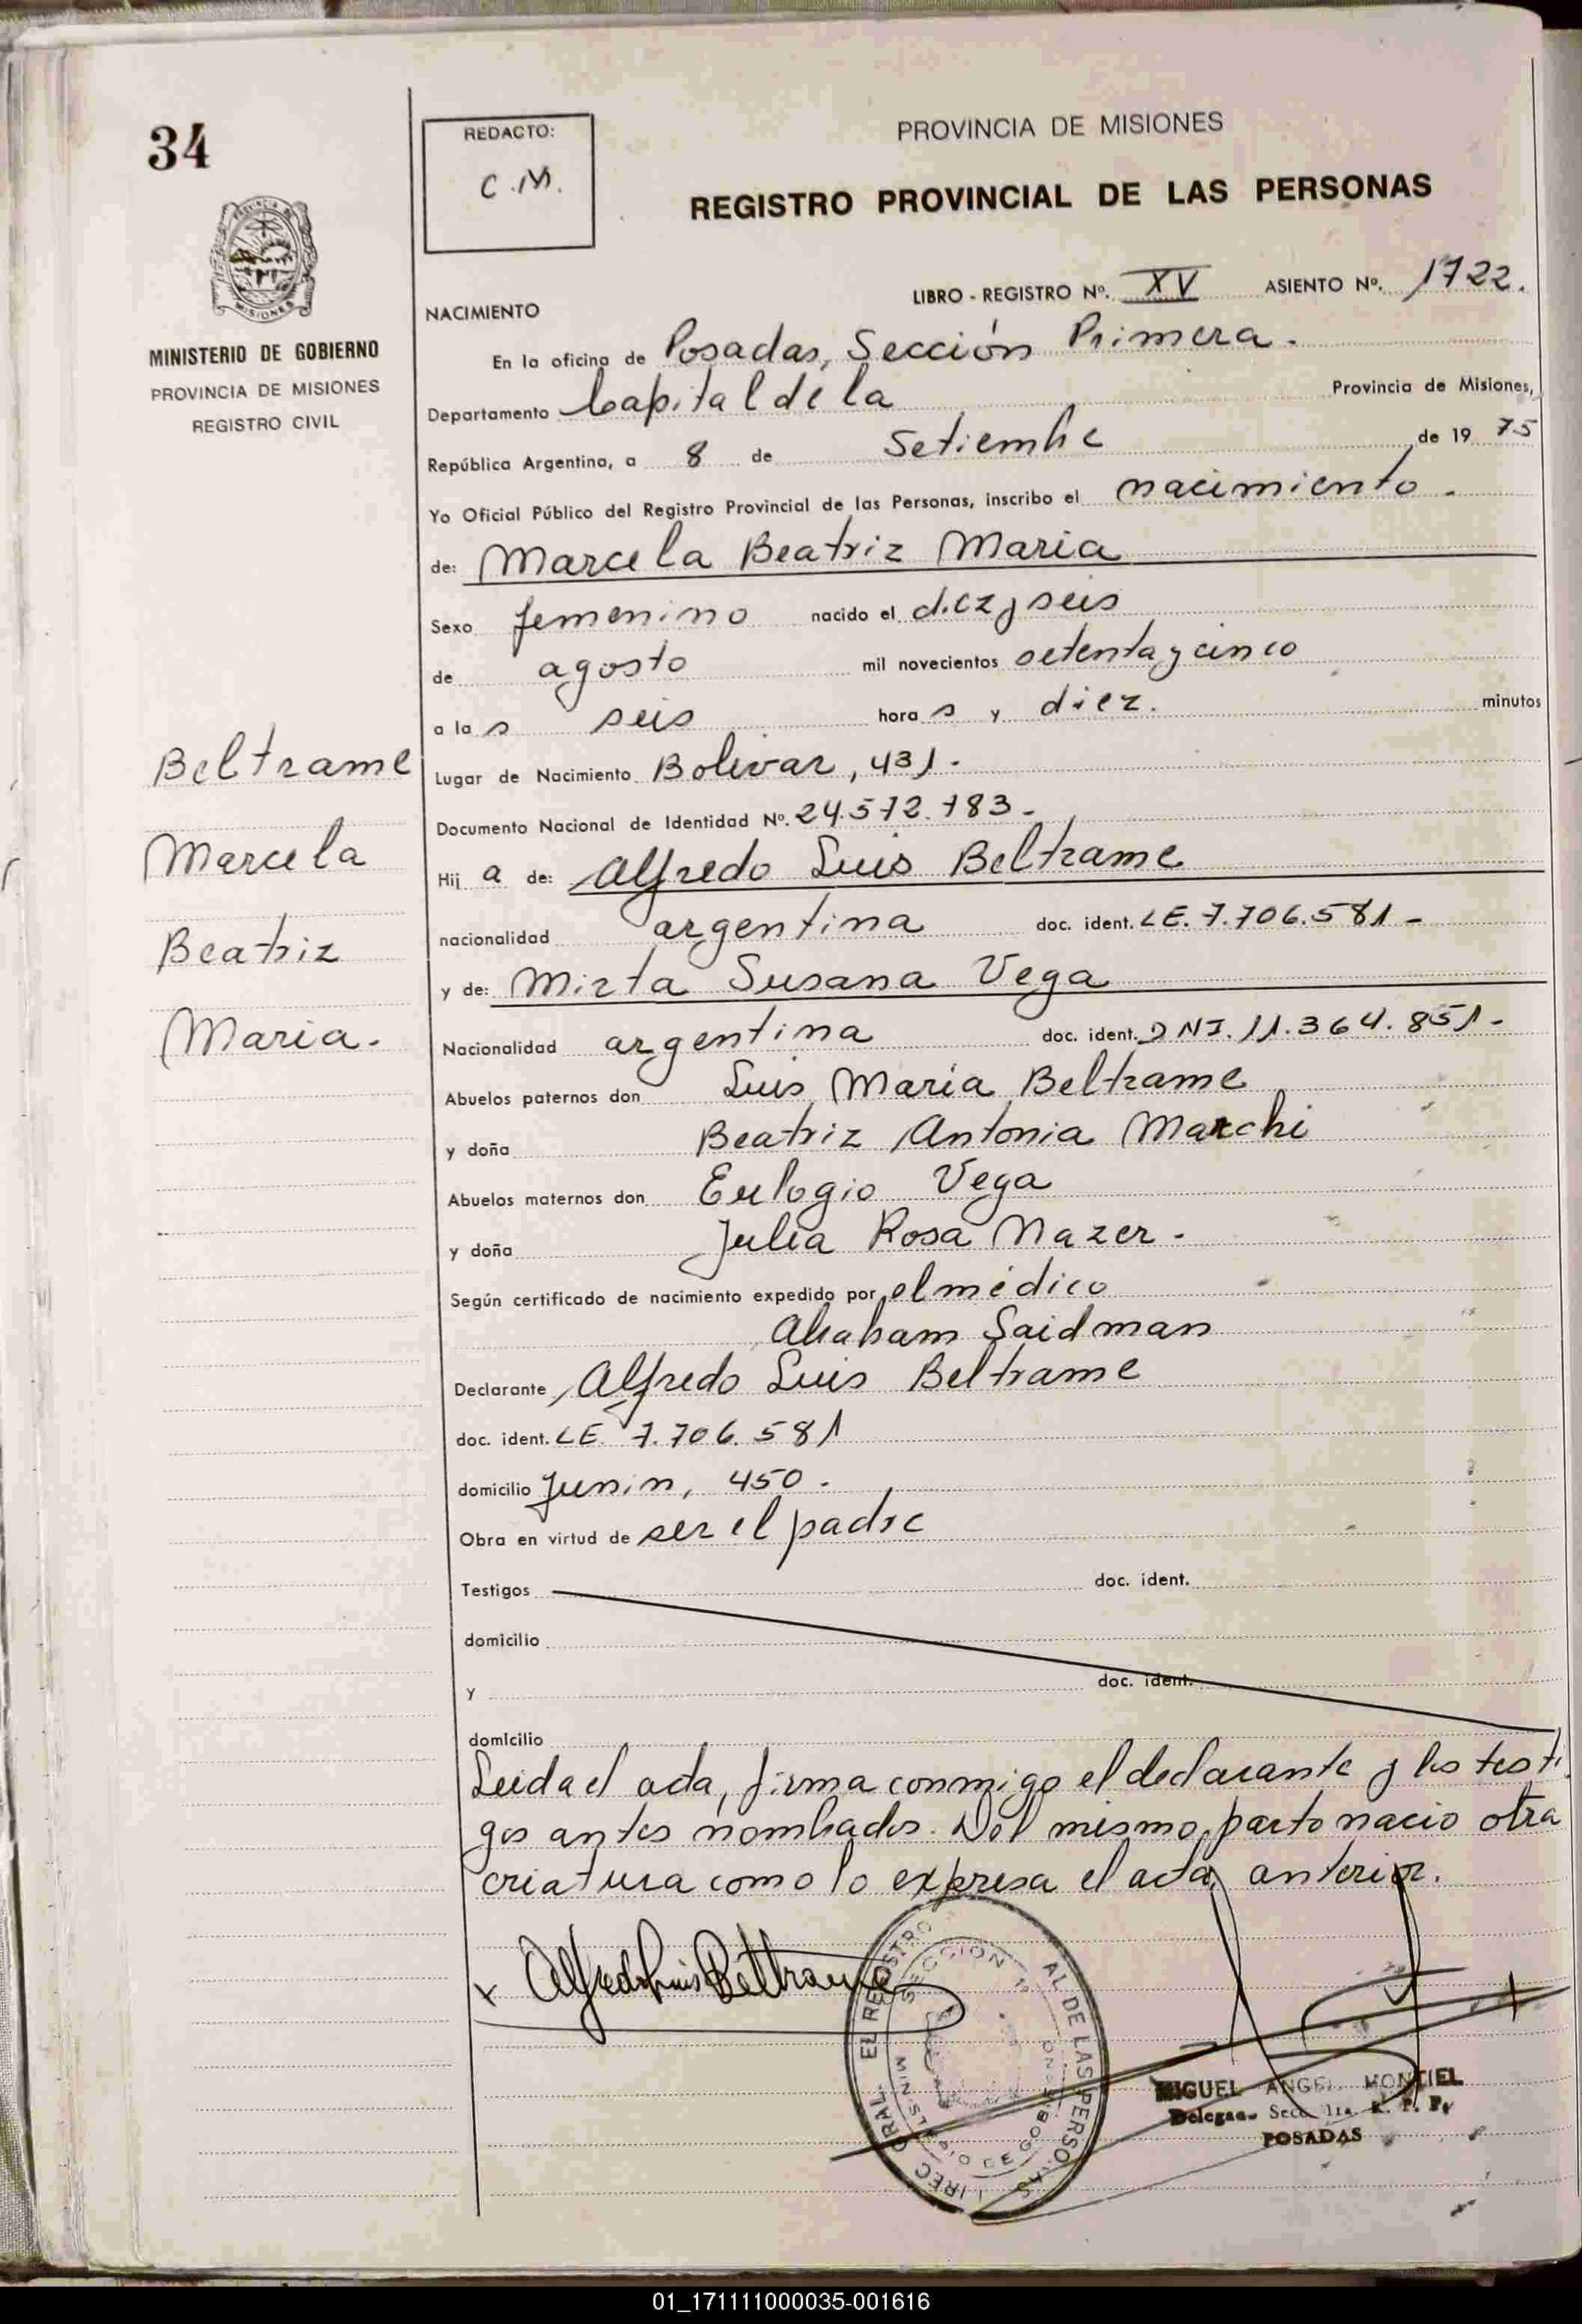 34
REDACTO:
C.M.
PROVINCIA DE MISIONES
REGISTRO PROVINCIAL DE LAS PERSONAS
MINISTERIO DE GOBIERNO
PROVINCIA DE MISIONES
REGISTRO CIVIL
LIBRO - REGISTRO Nº. XV ASIENTO Nº. 1722.
NACIMIENTO
En la oficina de Posadas, Sección Primera.
Departamento Capital de la Provincia de Misiones,
República Argentina, a 8 de Setiembre de 19 75
Yo Oficial Público del Registro Provincial de las Personas, inscribo el nacimiento.
de: Marcela Beatriz Maria
Sexo femenino nacido el diez y seis
de agosto mil novecientos setenta y cinco
a la s seis hora s y diez. minutos
Lugar de Nacimiento Bolivar, 431.
Documento Nacional de Identidad Nº. 24.572.783-
Hij a de: Alfredo Luis Beltrame
nacionalidad argentina doc. ident. LE. 7.706.581-
y de: Mirta Susana Vega
Nacionalidad argentina doc. ident. DNI. 11.364.851-
Abuelos paternos don Luis Maria Beltrame
y doña Beatriz Antonia Marchi
Abuelos maternos don Eulogio Vega
y doña Julia Rosa Nazer-
Según certificado de nacimiento expedido por el médico
Abraham Saidman
Declarante Alfredo Luis Beltrame
doc. ident. LE. 7.706.581
domicilio Junin, 450.
Obra en virtud de ser el padre
Testigos doc. ident.
domicilio
y doc. ident.
domicilio
Leida el acta, firma conmigo el declarante y los testi
gos antes nombrados. Del mismo parto nacio otra
criatura como lo expresa el acta anterior.
Beltrame
Marcela
Beatriz
Maria.
Alfredo Luis Beltrame
EL REGISTRO AL DE LAS PERSONAS
SECCION 1ª
MINISTERIO DE GOBIERNO
MIGUEL ANGEL MONTIEL
Delegado Secc. 1ra. R. P. P.
POSADAS
01_171111000035-001616